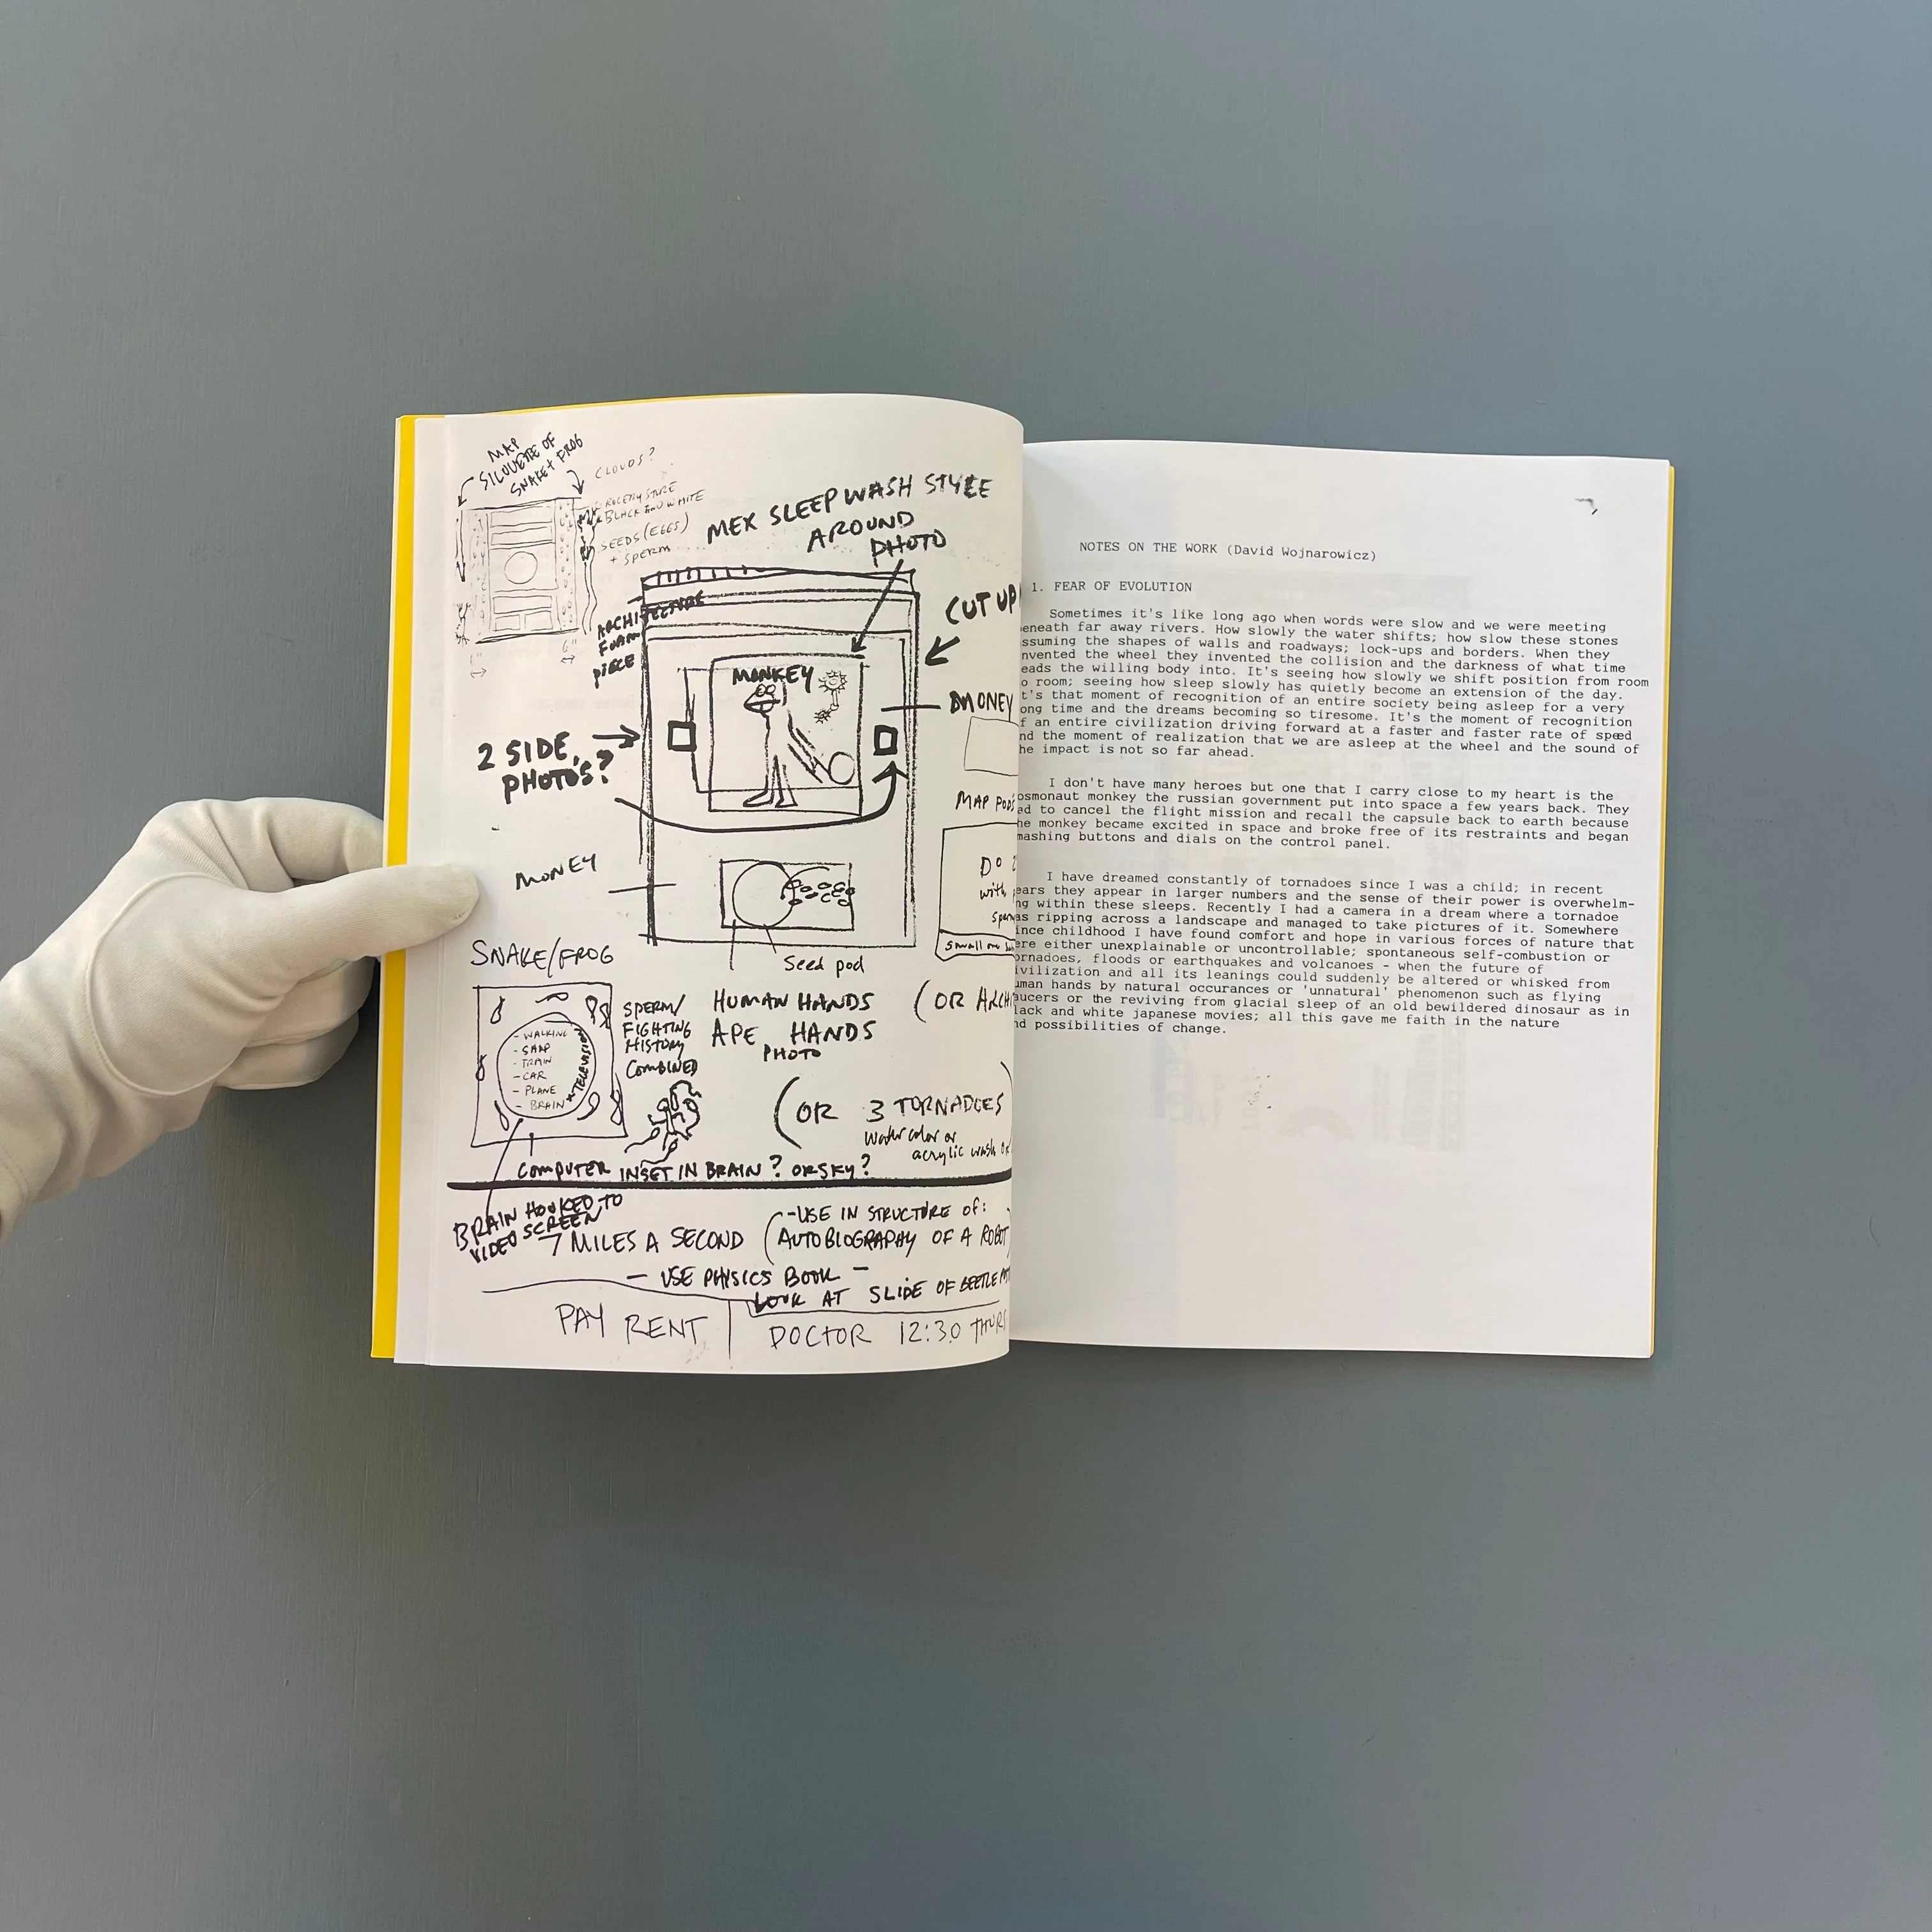 MAP
SILOUETTE OF
SNAKE + FROG
CLOUDS?
BLACK AND WHITE
SEEDS (EGGS)
+ SPERM
6"
MEX SLEEP WASH STYLE
AROUND
PHOTO
ARCHITECTURE
FOAM
PIECE
CUT UP
MONKEY
MONEY
2 SIDE,
PHOTOS?
MAP PODS
MONEY
DO
with
small
Seed pod
SNAKE/FROG
- WALKING
- TRAIN
- CAR
- PLANE
- BRAIN
TELEVISION
SPERM/
FIGHTING
HISTORY
COMBINED
HUMAN HANDS
APE HANDS
PHOTO
(OR ARCHI
(OR 3 TORNADOES
Watercolor or
acrylic wash
COMPUTER INSET IN BRAIN? OR SKY?
BRAIN HOOKED TO
VIDEO SCREEN
7 MILES A SECOND
(-USE IN STRUCTURE OF:
AUTOBIOGRAPHY OF A ROBOT)
- USE PHYSICS BOOK -
LOOK AT SLIDE OF BEETLE
PAY RENT
DOCTOR 12:30 THURS
NOTES ON THE WORK (David Wojnarowicz)
1. FEAR OF EVOLUTION
Sometimes it's like long ago when words were slow and we were meeting
eneath far away rivers. How slowly the water shifts; how slow these stones
ssuming the shapes of walls and roadways; lock-ups and borders. When they
nvented the wheel they invented the collision and the darkness of what time
eads the willing body into. It's seeing how slowly we shift position from room
o room; seeing how sleep slowly has quietly become an extension of the day.
t's that moment of recognition of an entire society being asleep for a very
ong time and the dreams becoming so tiresome. It's the moment of recognition
f an entire civilization driving forward at a faster and faster rate of speed
nd the moment of realization that we are asleep at the wheel and the sound of
he impact is not so far ahead.
I don't have many heroes but one that I carry close to my heart is the
osmonaut monkey the russian government put into space a few years back. They
ed to cancel the flight mission and recall the capsule back to earth because
he monkey became excited in space and broke free of its restraints and began
mashing buttons and dials on the control panel.
I have dreamed constantly of tornadoes since I was a child; in recent
ears they appear in larger numbers and the sense of their power is overwhelm-
ng within these sleeps. Recently I had a camera in a dream where a tornadoe
as ripping across a landscape and managed to take pictures of it. Somewhere
ince childhood I have found comfort and hope in various forces of nature that
ere either unexplainable or uncontrollable; spontaneous self-combustion or
ornadoes, floods or earthquakes and volcanoes - when the future of
ivilization and all its leanings could suddenly be altered or whisked from
uman hands by natural occurances or 'unnatural' phenomenon such as flying
aucers or the reviving from glacial sleep of an old bewildered dinosaur as in
lack and white japanese movies; all this gave me faith in the nature
nd possibilities of change.